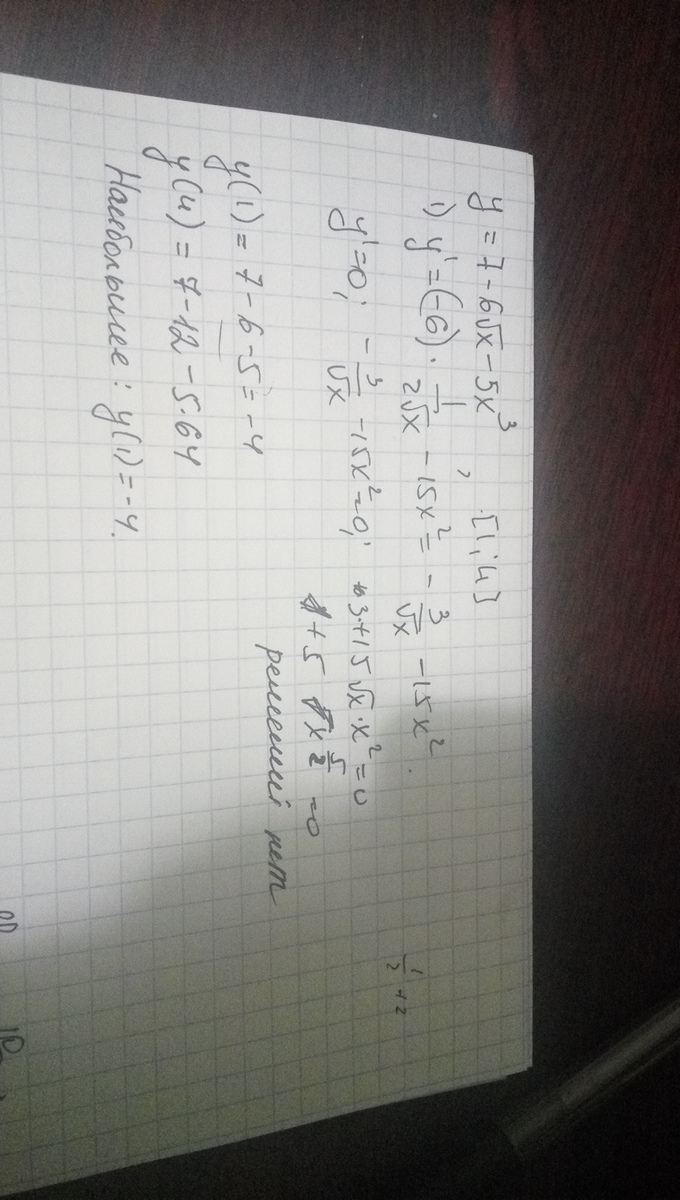 y = 7 - 6√x - 5x³, [1; 4]
1) y' = (-6) · 1/(2√x) - 15x² = - 3/√x - 15x².
y' = 0; - 3/√x - 15x² = 0; 3 + 15√x · x² = 0
1/2 + 2
1 + 5 x^(5/2) = 0
решений нет
y(1) = 7 - 6 - 5 = -4
y(4) = 7 - 12 - 5·64
Наибольшее: y(1) = -4.